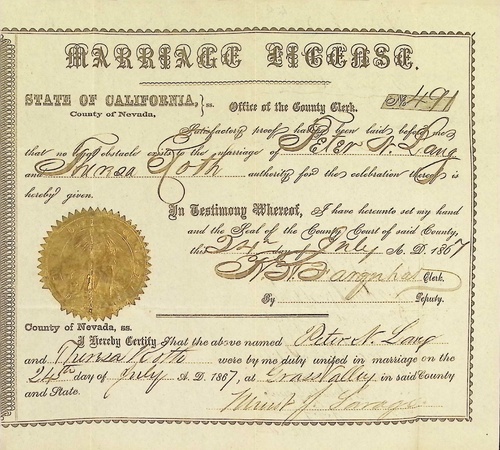 MARRIAGE LICENSE.
STATE OF CALIFORNIA, } ss. Office of the County Clerk. No 491
County of Nevada.
Satisfactory proof having been laid before me
that no legal obstacle exists to the marriage of Peter N. Lang
and Theresa Roth authority for the celebration thereof is
hereby given.
In Testimony Whereof, I have hereunto set my hand
and the Seal of the County Court of said County,
this 24th day of July A. D. 1867
Clerk.
By Deputy.
County of Nevada, ss.
I Hereby Certify That the above named Peter N. Lang
and Theresa Roth were by me duly united in marriage on the
24th day of July A. D. 1867, at Grass Valley in said County
and State.